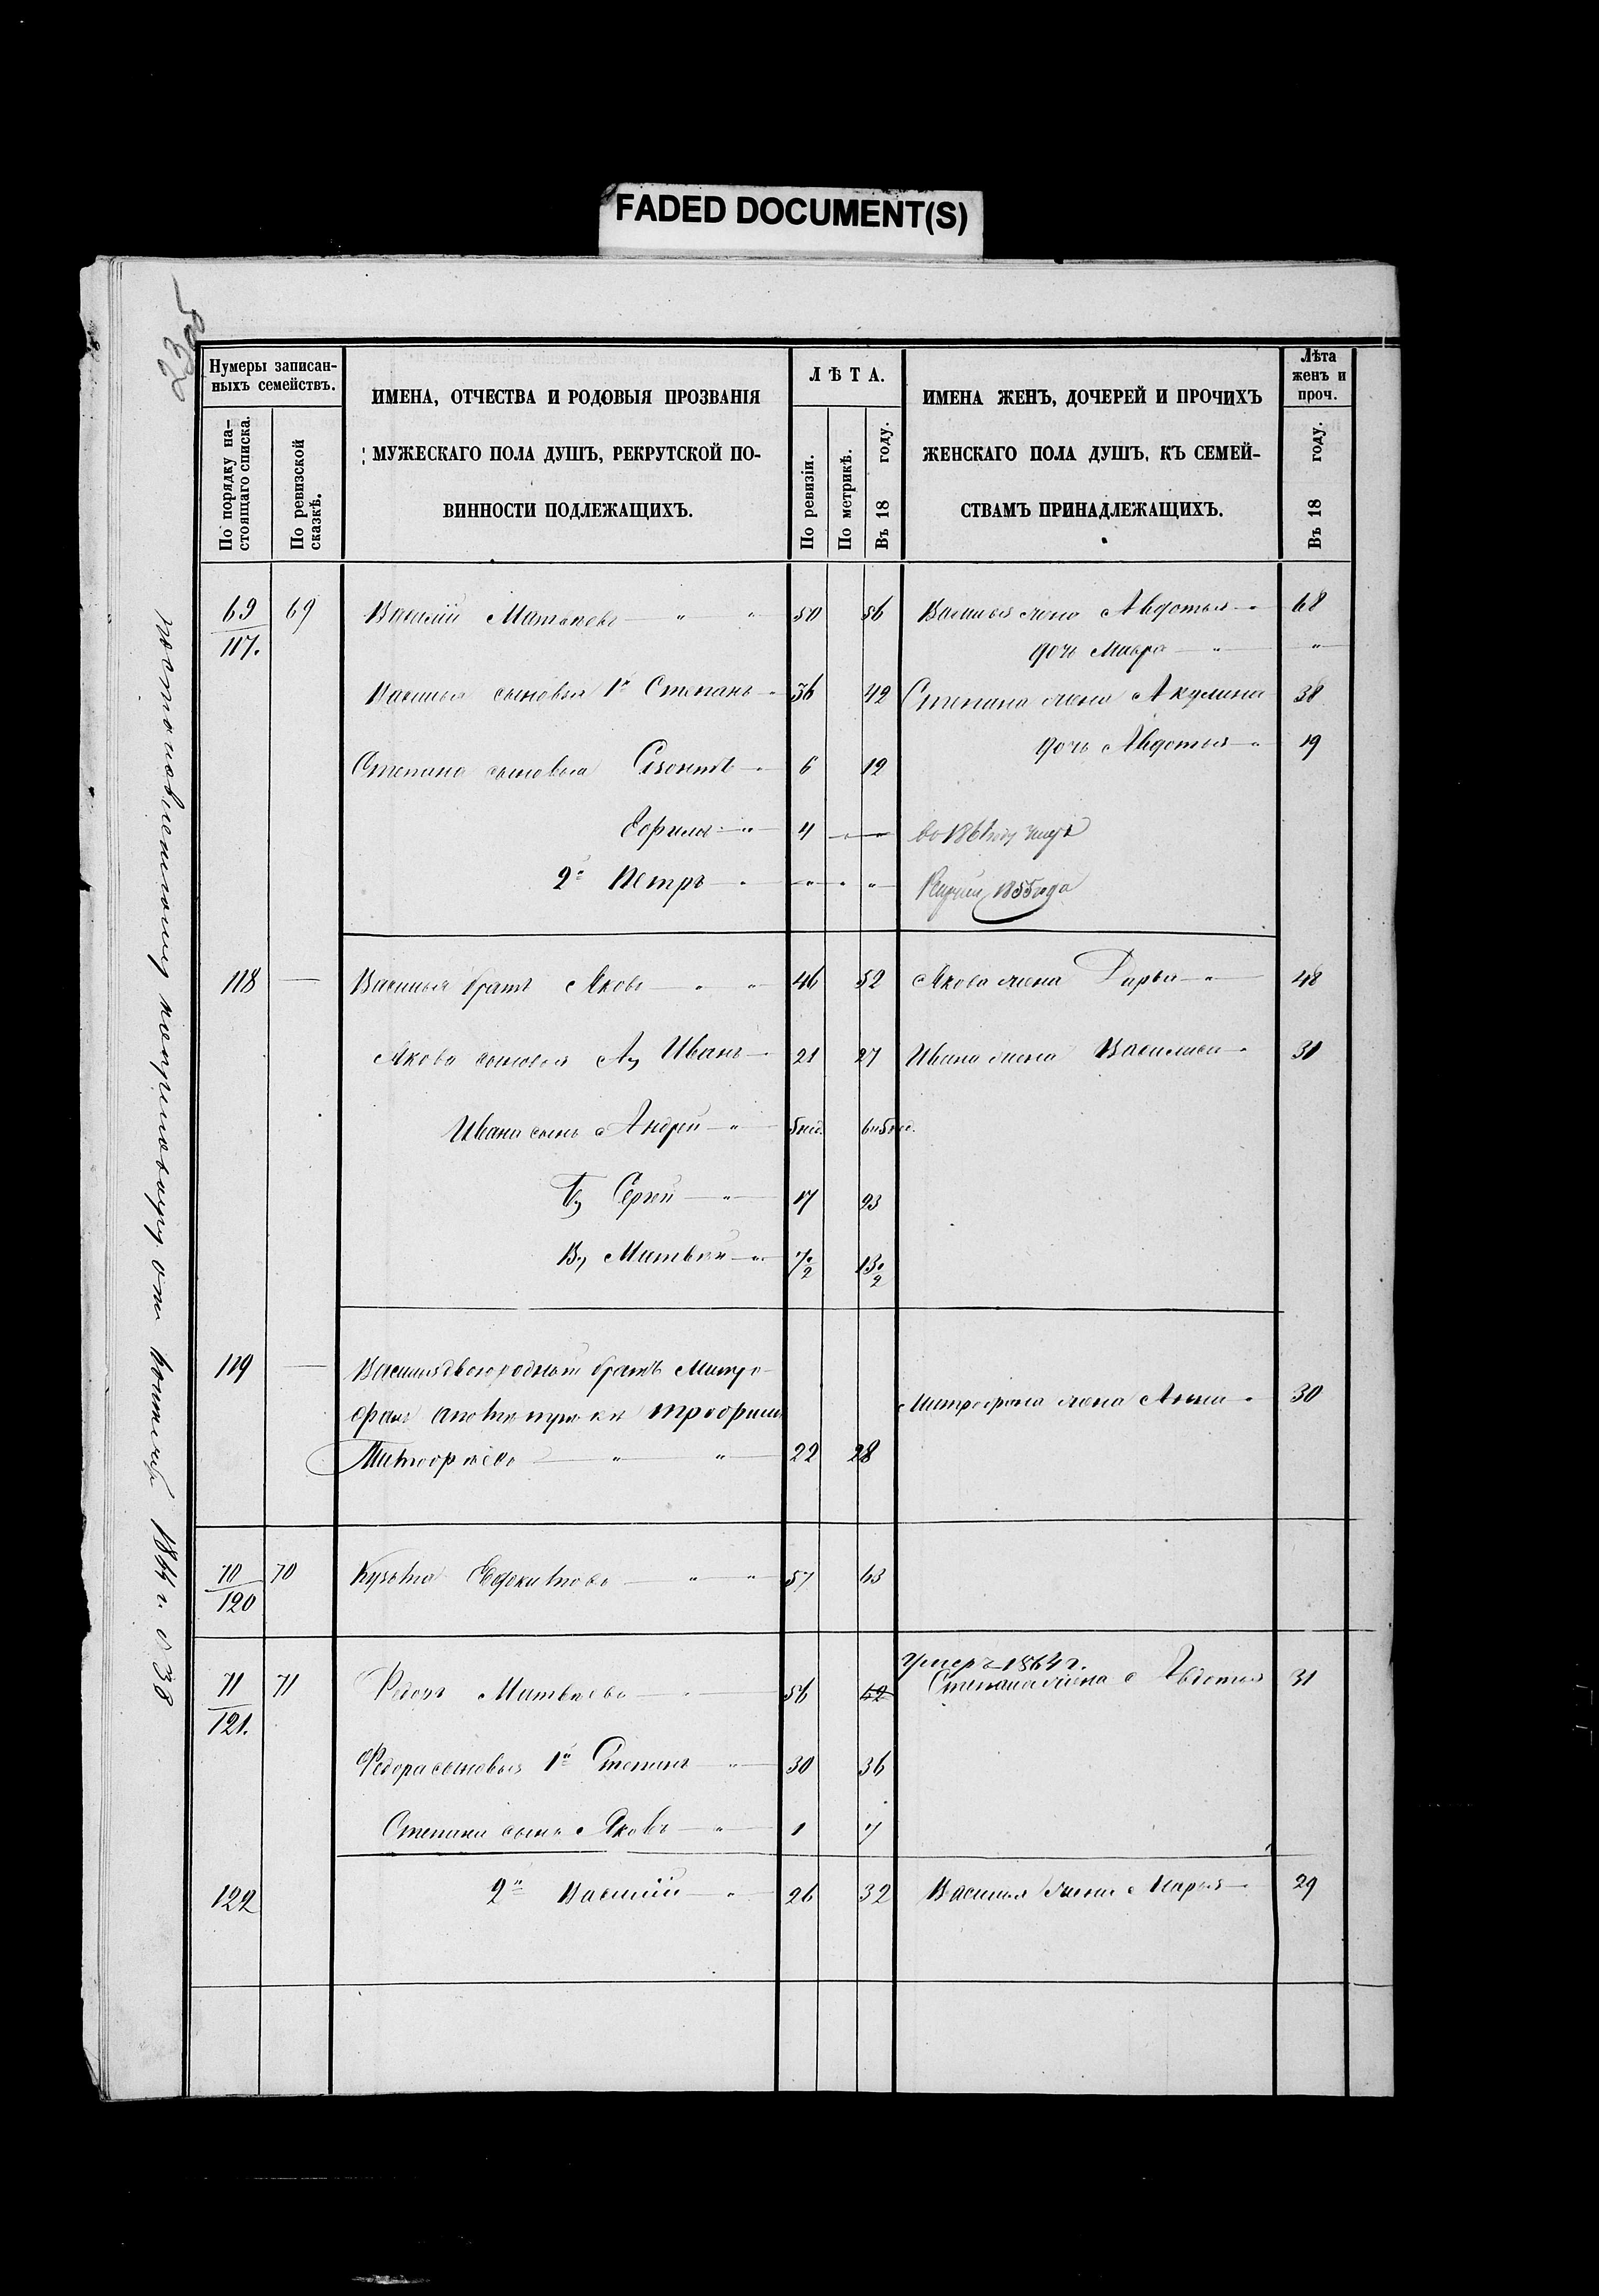 FADED DOCUMENT(S)
Нумеры записан-
ныхъ семействъ.
По порядку на-
стоящаго списка.
По ревизской
сказкѣ.
ИМЕНА, ОТЧЕСТВА И РОДОВЫЯ ПРОЗВАНІЯ
МУЖЕСКАГО ПОЛА ДУШЪ, РЕКРУТСКОЙ ПО-
ВИННОСТИ ПОДЛЕЖАЩИХЪ.
ЛѢТА.
По ревизіи.
По метрикѣ.
Въ 18 году.
ИМЕНА ЖЕНЪ, ДОЧЕРЕЙ И ПРОЧИХЪ
ЖЕНСКАГО ПОЛА ДУШЪ, КЪ СЕМЕЙ-
СТВАМЪ ПРИНАДЛЕЖАЩИХЪ.
Лѣта
женъ и
проч.
Въ 18 году.
69 69 Василій Матвѣевъ — " " 50 56 Василья жена Авдотья 68
117. дочь — " — "
Василья сыновья 1й Степанъ 36 42 Степана жена Акулина 38
дочь Авдотья 19
Степана сыновья 6 12
4 — " — во 1861 году
2й Петръ — " — " — " 1855 года
118 — Василья братъ Яковъ — " " 46 52 Якова жена Дарья — " 48
Якова сыновья А, Иванъ 21 27 Ивана жена Василиса 31
Ивана сынъ Андрей — " 5 нед. 6 и 5 нед.
Б, Сергей — " 17 23
В, Матвѣй — " 7 1/2 13 1/2
119 — Василья двоюродный братъ Митро-
фанъ Митрофана жена Анна 30
— " " 22 28
70 70 Кузьма Евдокимовъ — " " 57 63
120
Умеръ 1864 г.
71 71 Федоръ Матвѣевъ — " 56 62 Степана жена Авдотья 31
121.
Федора сыновья 1й Степанъ — " 30 36
Степана сынъ Яковъ — " 1 7
122 2й Василій — " 26 32 Василья жена Марья 29